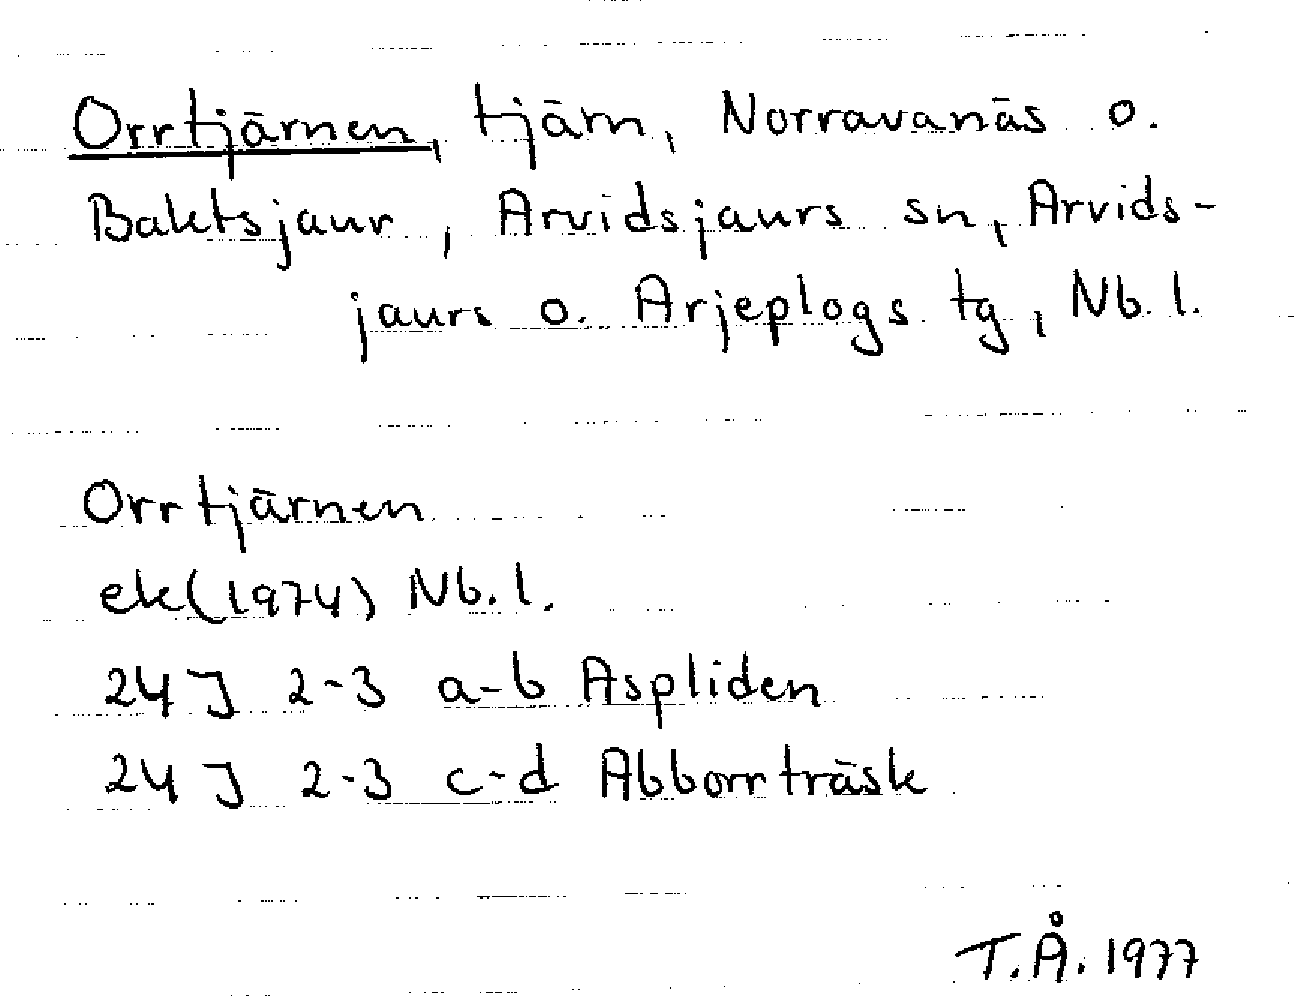 Orrtjärnen, tjärn, Norravanäs o.
Baktsjaur, Arvidsjaurs sn, Arvids-
jaurs o. Arjeplogs tg, Nb. l.
Orrtjärnen
ek(1974) Nb. l.
24 J 2-3 a-b Aspliden
24 J 2-3 c-d Abborrträsk
T.Å. 1977